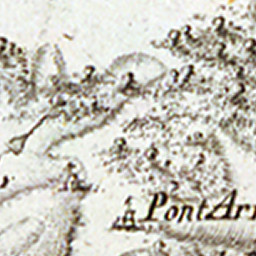 Pont Arr